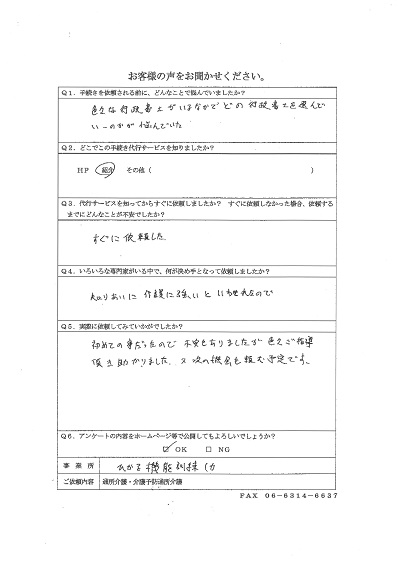 お客様の声をお聞かせください。
Q1．手続きを依頼される前に、どんなことで悩んでいましたか？
色々な行政書士がいるなかでどの行政書士を選んで
いいのかが悩んでいた
Q2．どこでこの手続き代行サービスを知りましたか？
HP 紹介 その他（ ）
Q3．代行サービスを知ってからすぐに依頼しましたか？ すぐに依頼しなかった場合、依頼する
までにどんなことが不安でしたか？
すぐに依頼した
Q4．いろいろな専門家がいる中で、何が決め手となって依頼しましたか？
知りあいに介護に強いと いわれたので
Q5．実際に依頼してみていかがでしたか？
初めての事だったので 不安もありましたが 色々ご指導
頂き助かりました。又次の機会も頼む予定です。
Q6．アンケートの内容をホームページ等で公開してもよろしいでしょうか？
☑ OK □ NG
事業所 機能訓練
ご依頼内容 通所介護・介護予防通所介護
FAX 06-6314-6637